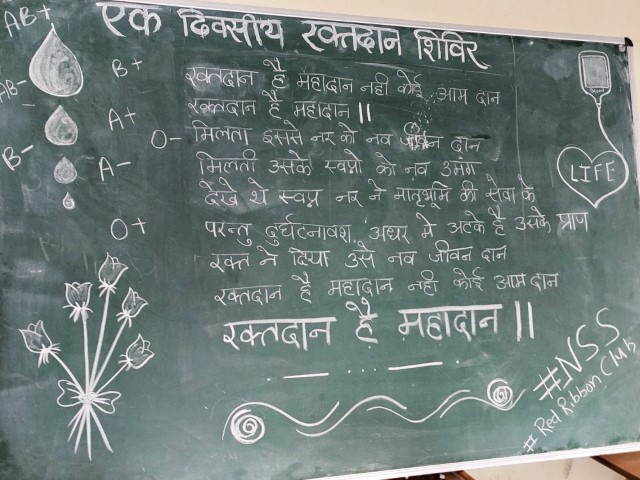 एक दिवसीय रक्तदान शिविर
AB+
B+
AB-
A+
O-
B-
A-
O+
रक्तदान है महादान नही कोई आम दान
रक्तदान है महादान ||
मिलता इससे नर को नव जीवन दान
मिलती उसके स्वप्नो को नव उमंग
देखे थे स्वप्न नर ने मातृभूमि की सेवा के
परन्तु दुर्घटनावश अधर मे अटके है उसके प्राण
रक्त ने दिया उसे नव जीवन दान
रक्तदान है महादान नही कोई आम दान
रक्तदान है महादान ||
LIFE
#NSS
# Red Ribbon Club